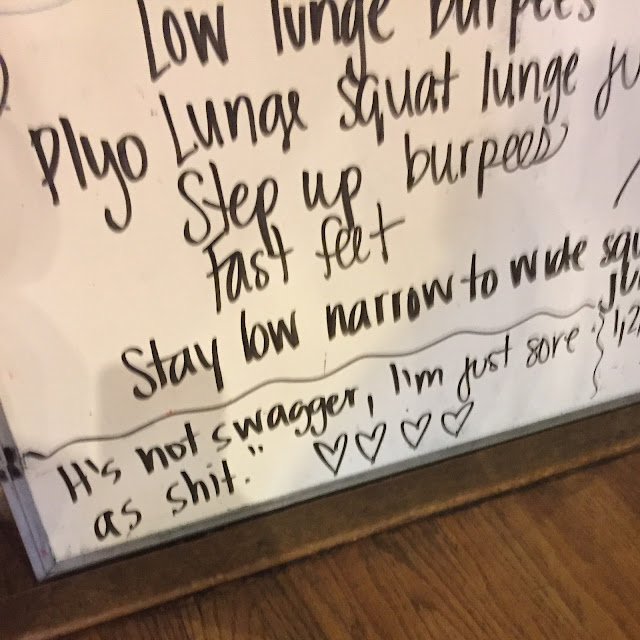 Low lunge burpees
Plyo Lunge Squat lunge
Step up burpees
Fast feet
Stay low narrow to wide
It's not swagger, I'm just sore
as shit."